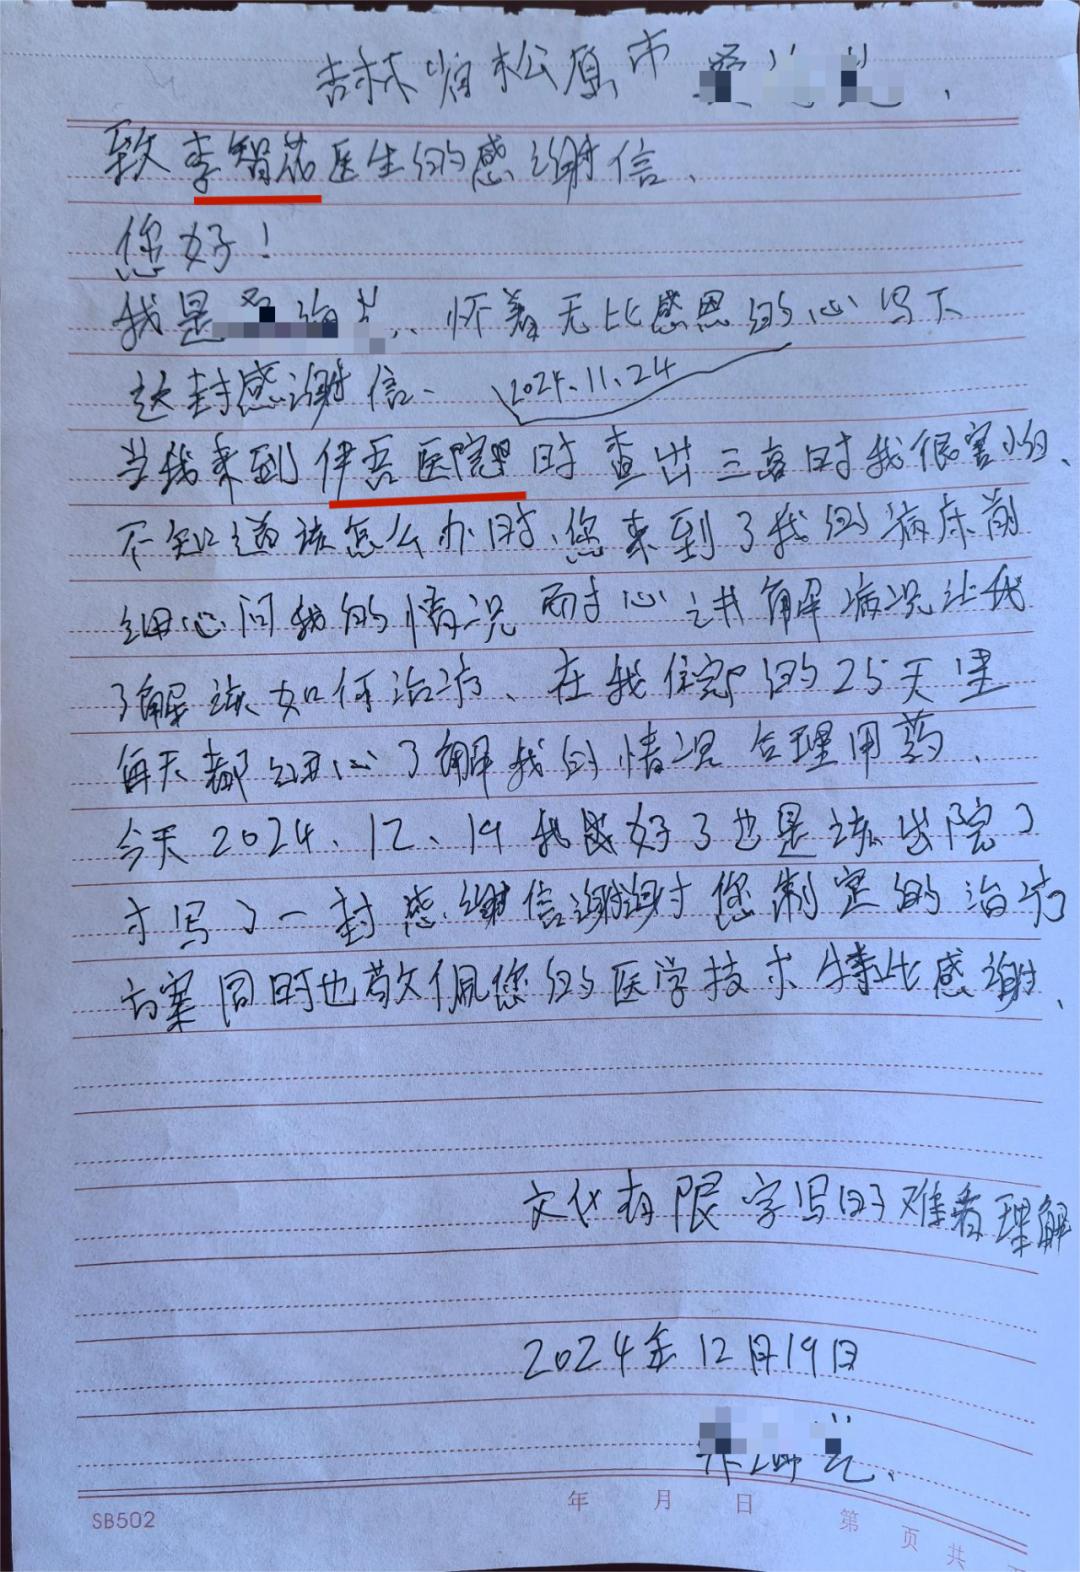 吉林省松原市
致李智茹医生的感谢信、
您好!
我是 怀着无比感恩的心写下
这封感谢信、 2024.11.24
当我来到伊吾医院时查出三高时我很害怕、
不知道该怎么办时、您来到了我的病床前
细心问我的情况 耐心讲解病况让我
了解该如何治疗、在我住院的25天里
每天都细心了解我的情况 合理用药、
今天2024、12、19 我好了也是该出院了
才写了一封感谢信谢谢您制定的治疗
方案同时也敬佩您的医学技术 特此感谢、
文化有限 字写的难看理解
2024年12月19日
SB502 年 月 日 第 页 共